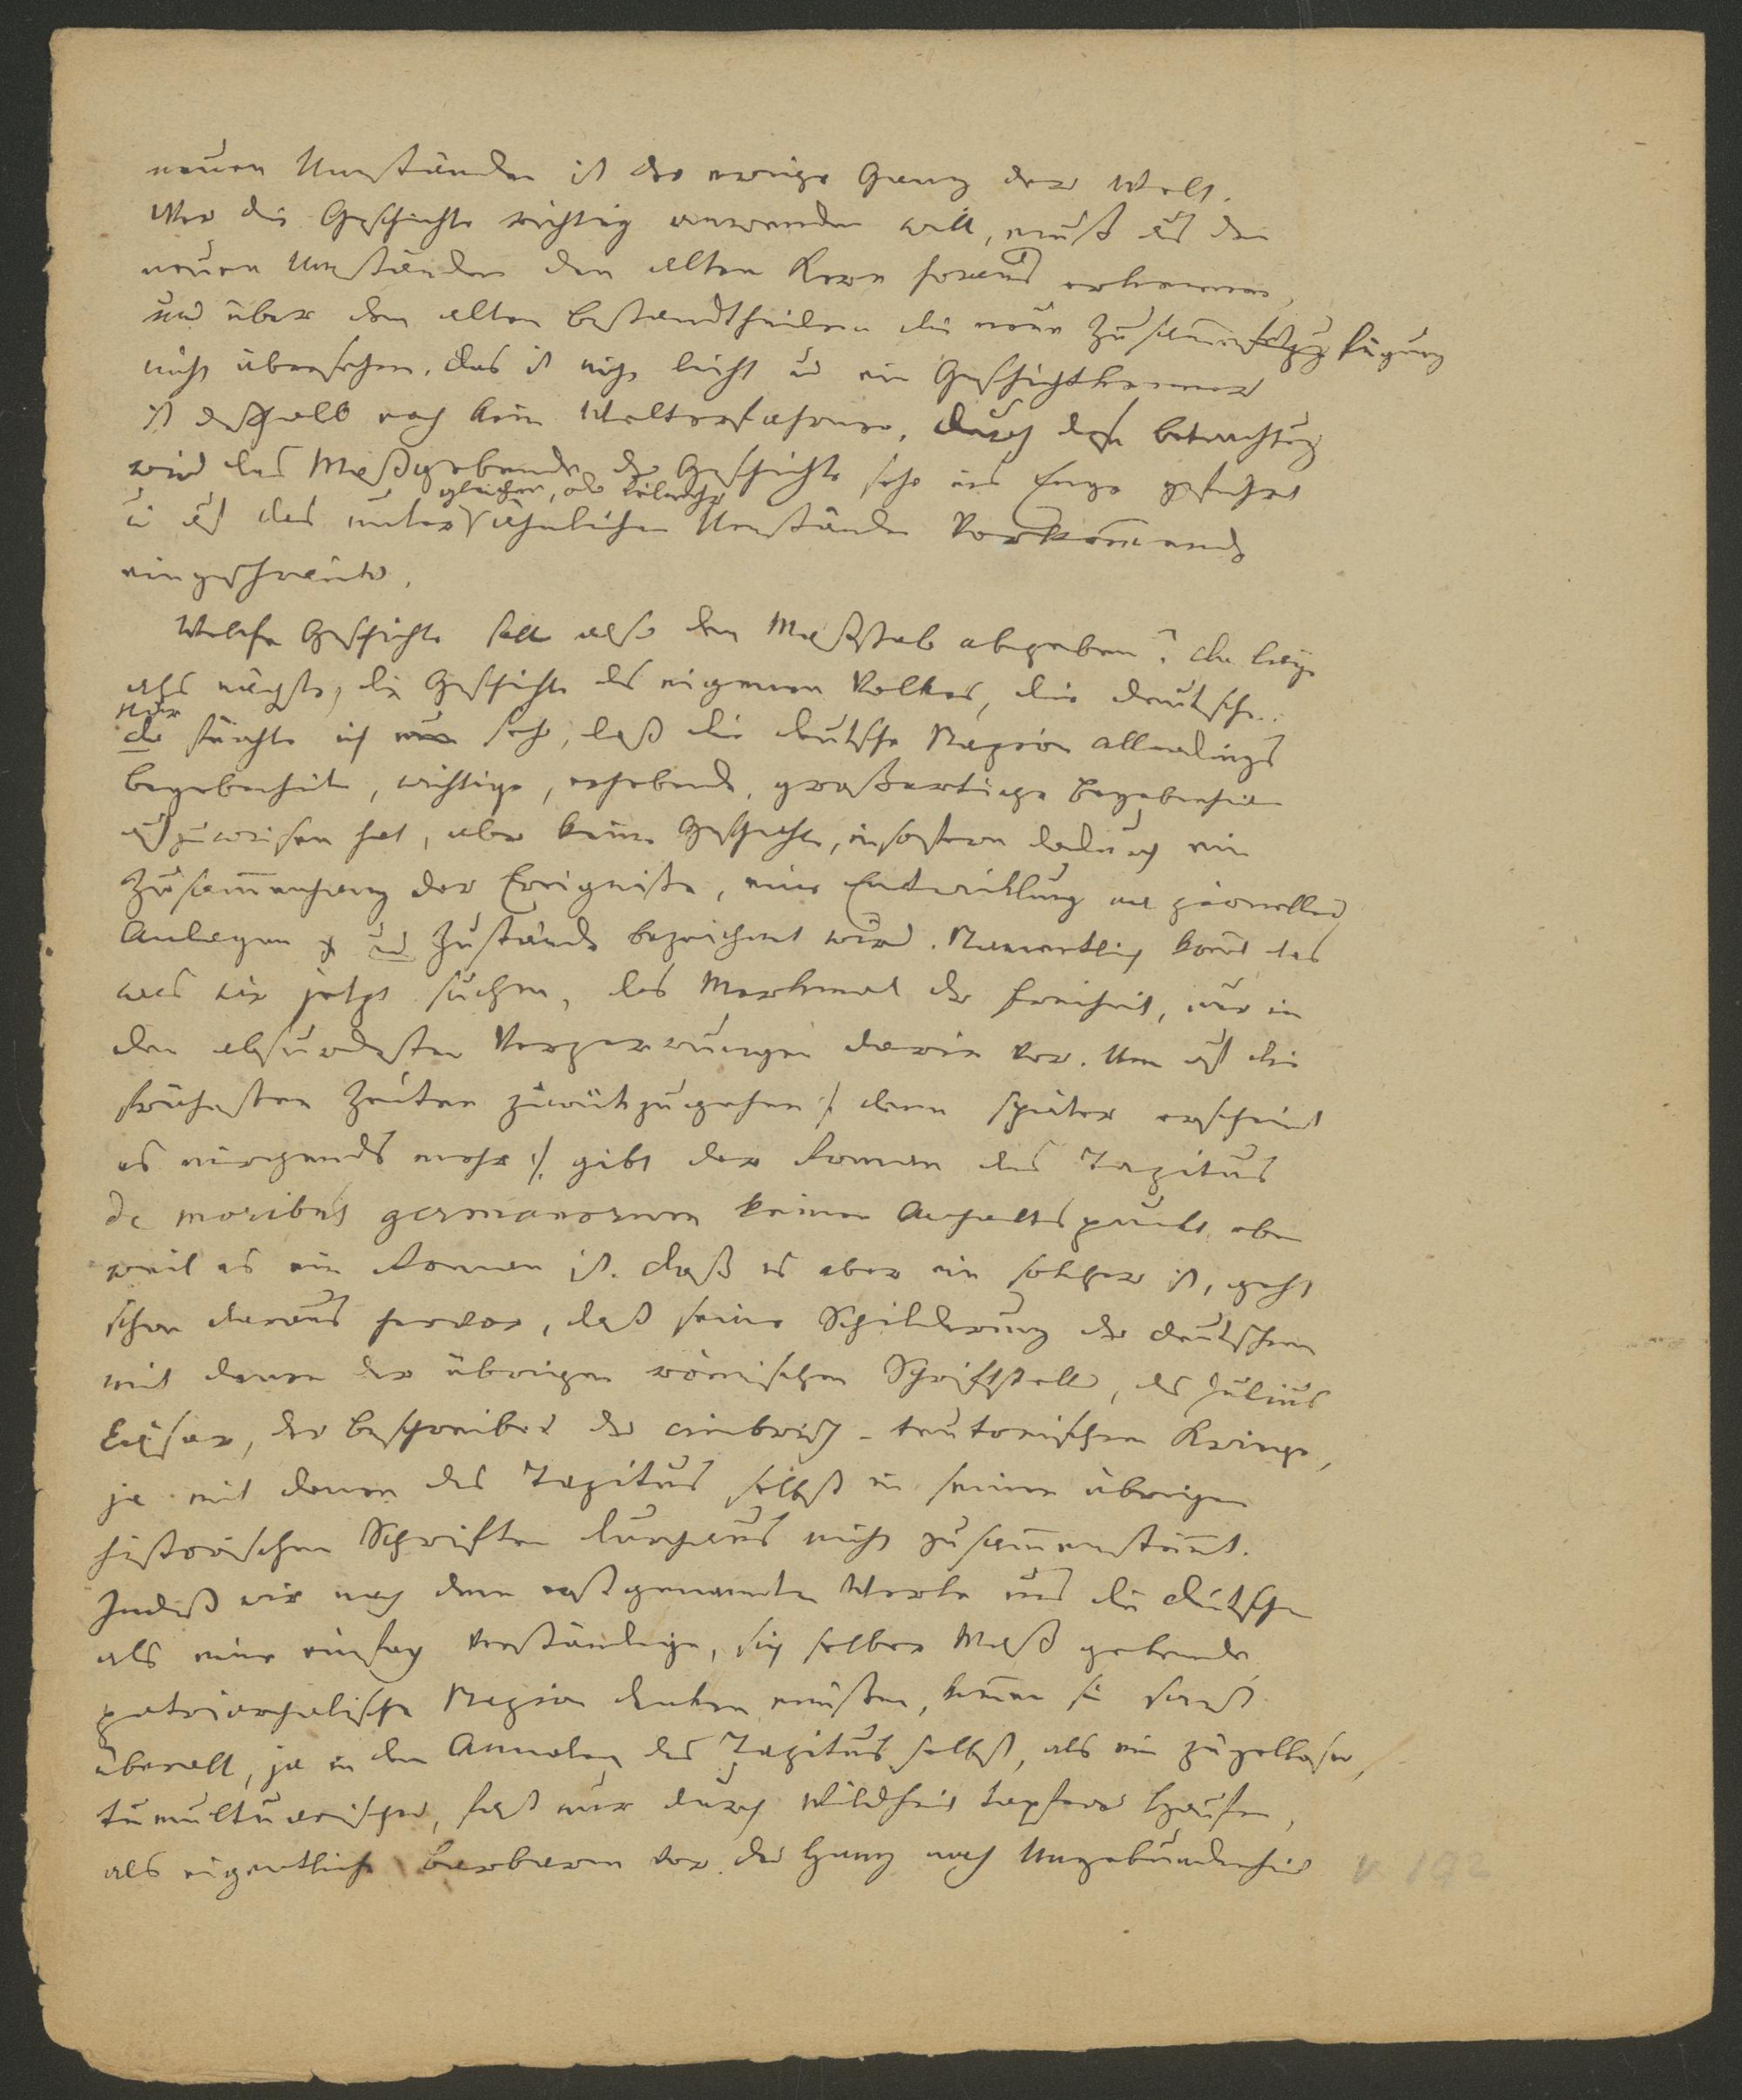 neuen Umständen ist der ewige Gang der Welt.
Wer die Geschichte richtig anwenden will, muß aus den
neuen Umständen den alten Kern heraus erkennen,
und über den alten Bestandtheilen die neue Zusammenfügung
nicht übersehen. Das ist nicht leicht und ein Geschichtkenner
ist deßhalb noch kein Welterfahrner. Durch diese Betrachtung
wird das Maßgebende der Geschichte sehr ins Enge geführt
gleichen, oder vielmehr
u auf das unter ähnlichen Umständen Vorkommende
eingeschränkt.
Welche Geschichte soll also den Maßstab abgeben? Da liegt
als nächste, die Geschichte des eigenen Volkes, die deutsche.
Nur
da fürchte ich nun sehr, daß die deutsche Nazion allerdings
Begebenheiten, wichtige, erhebende, großartige Begebenheiten
aufzuweisen hat, aber keine Geschichte, insofern dadurch ein
Zusammenhang der Ereigniße, eine Entwicklung nazioneller
Anlagen und Zustände bezeichnet wird. Namentlich kommt das
was wir jetzt suchen, das Merkmal der Freiheit, nur in
den absurdesten Verzerrungen darin vor. Um auf die
frühesten Zeiten zurückzugehen /: denn später erscheint
es nirgends mehr :/ gibt der Roman des Tazitus
de moribus germanorum keinen Anhaltspunkt, eben
weil es ein Roman ist. Daß es aber ein solcher ist, geht
schon daraus hervor, daß seine Schilderung der Deutschen
mit denen der übrigen römischen Schriftsteller, des Julius
Cäsar, der Beschreiber der cimbrisch-teutonischen Kriege,
ja mit denen des Tazitus selbst in seinen übrigen
historischen Schriften durchaus nicht zusammenstimmt.
Indeß wir nach dem erstgenannten Werke uns die Deutschen
als eine einfach verständige, sich selber Maß gebende,
patriarchalische Nazion denken müßen, kommen sie sonst
überall, ja in den Annalen des Tazitus selbst, als ein zügelloser,
tumultuarischer, fast nur durch Wildheit tapferer Haufen,
als eigentliche Barbaren vor. Der Hang nach Ungebundenheit
192